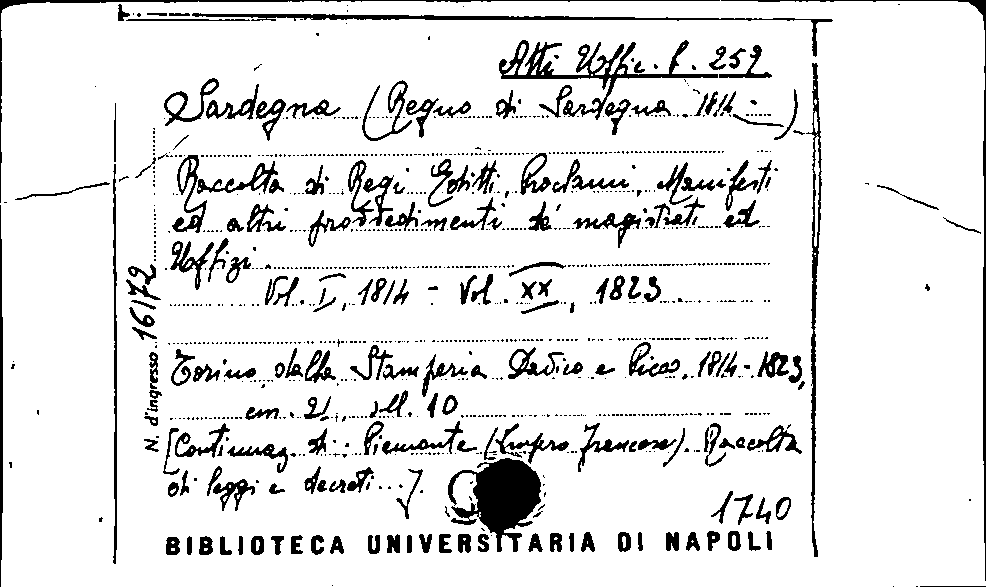 Atti Uffic. f. 259.
Sardegna (Regno di Sardegna. 1814 - )
Raccolta di Regi Editti, Proclami, Manifesti
ed altri provvedimenti de' magistrati ed
Uffizi.
Vol. I, 1814 - Vol. XX, 1823.
Torino, dalla Stamperia Davico e Picco, 1814-1823,
cm. 21, 10
[Continuaz. di: Piemonte (Impero francese). Raccolta
di leggi e decreti...].
1740
N. d'ingresso 16172
BIBLIOTECA UNIVERSITARIA DI NAPOLI